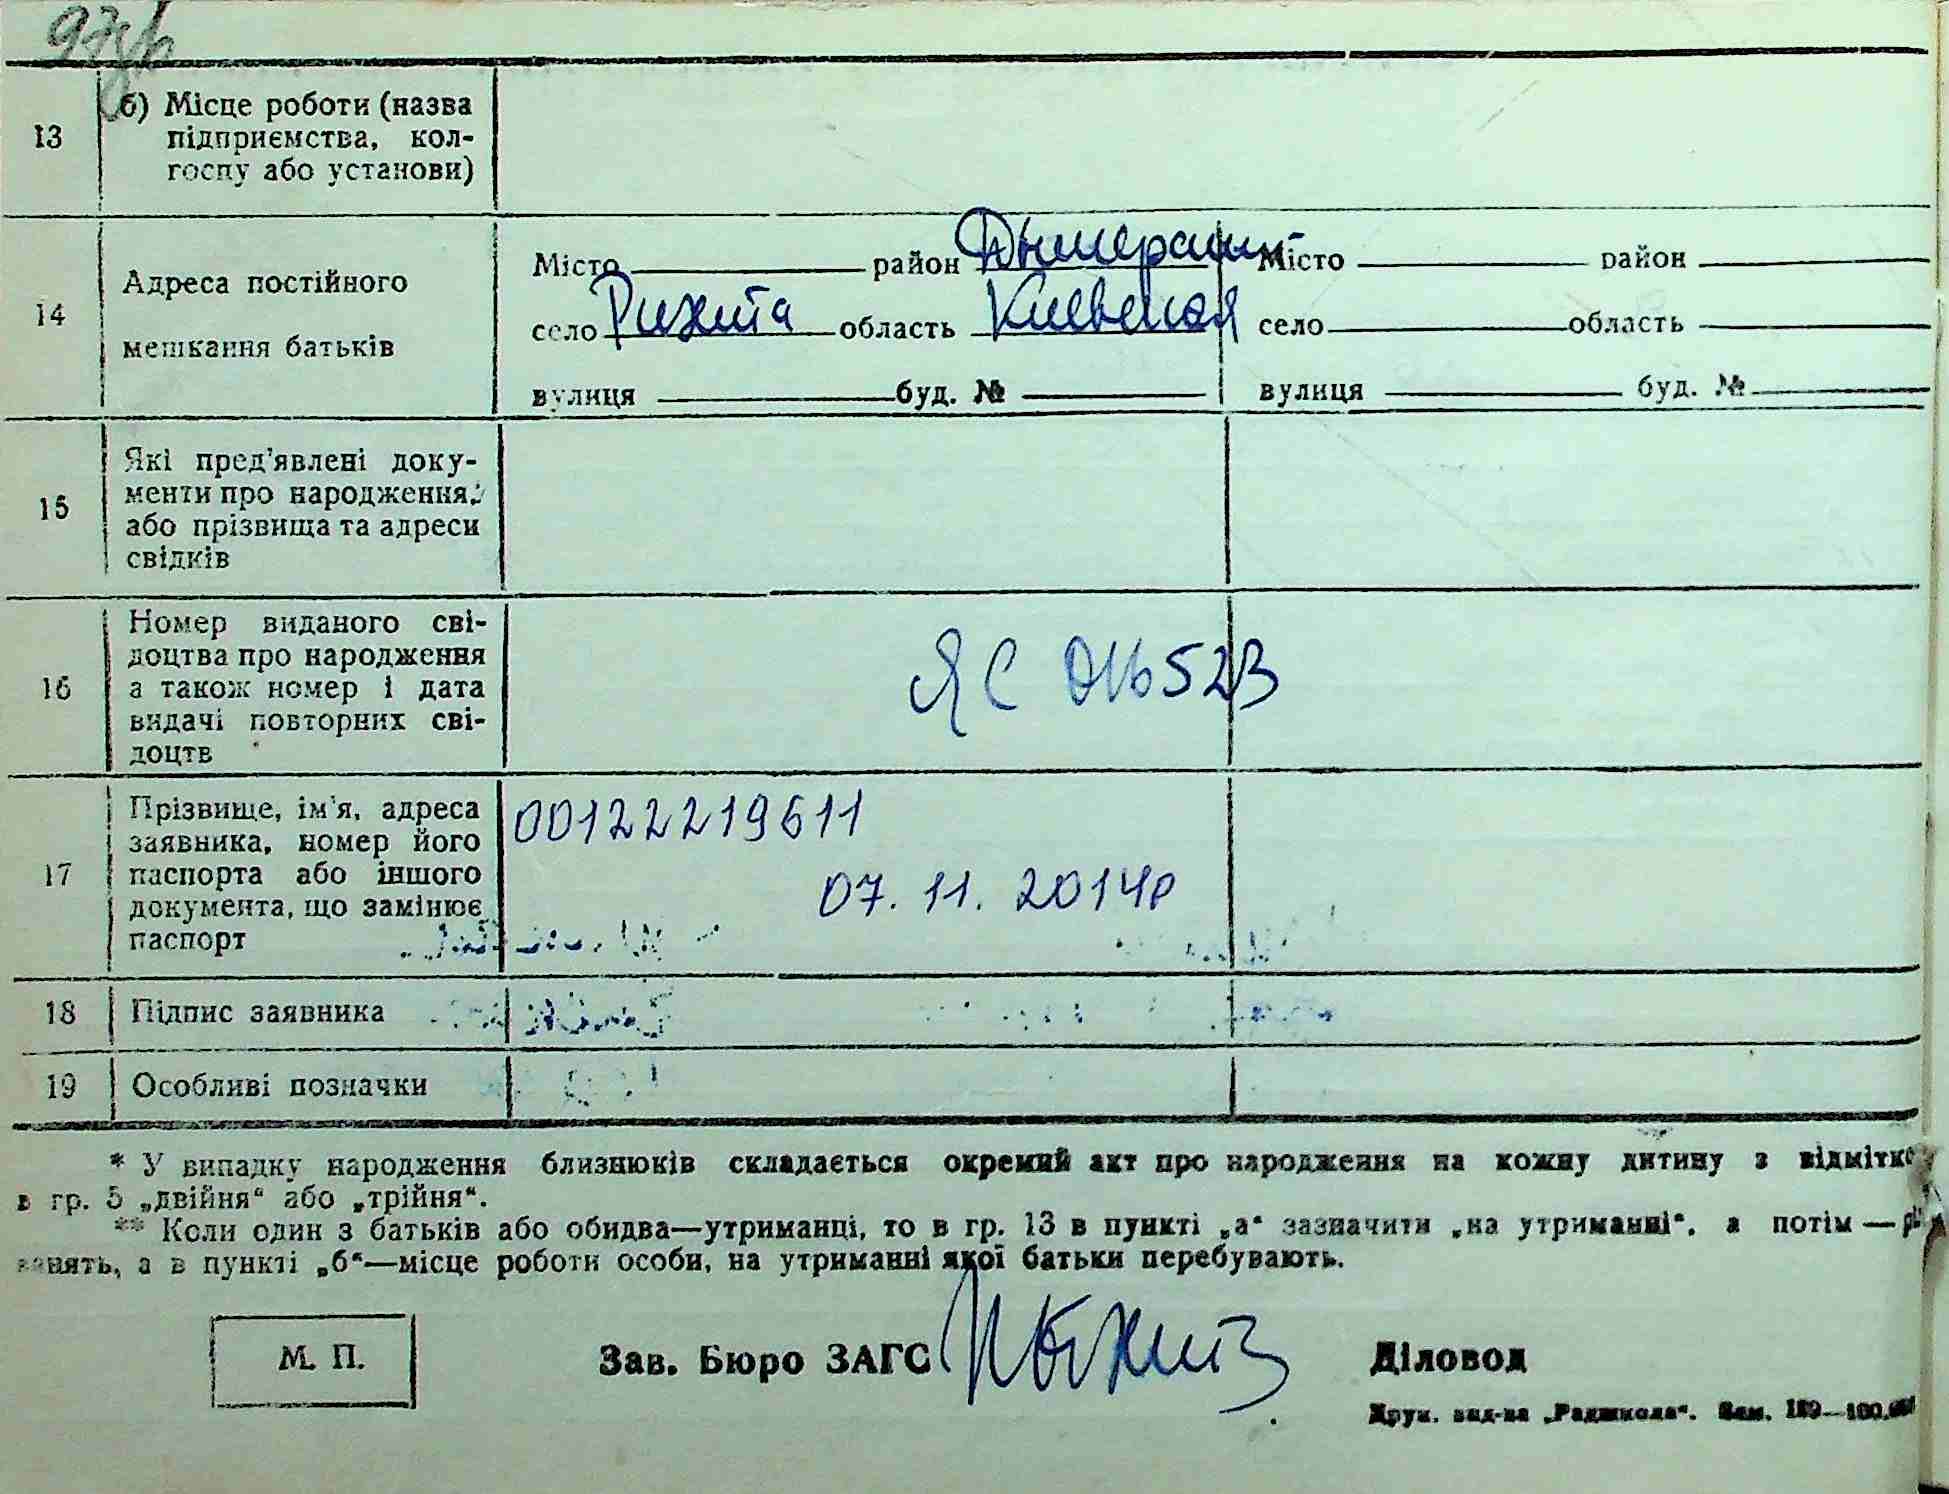 13
б) Місце роботи (назва
підприємства, кол-
госпу або установи)
14
Адреса постійного
мешкання батьків
Місто район Дымерский
село область Киевская
вулиця буд. №
Місто район
село область
вулиця буд. №
15
Які пред'явлені доку-
менти про народження,
або прізвища та адреси
свідків
16
Номер виданого сві-
доцтва про народження
а також номер і дата
видачі повторних сві-
доцтв
ЯС 016523
17
Прізвище, ім'я, адреса
заявника, номер його
паспорта або іншого
документа, що замінює
паспорт
00122219611
07.11.2014р
18
Підпис заявника
19
Особливі позначки
* У випадку народження близнюків складається окремий акт про народження на кожну дитину з відмітко
в гр. 5 „двійня“ або „трійня“.
** Коли один з батьків або обидва—утриманці, то в гр. 13 в пункті „а“ зазначити „на утриманні“, а потім —
занять, а в пункті „б“—місце роботи особи, на утриманні якої батьки перебувають.
М. П.
Зав. Бюро ЗАГС
Діловод
Друк. вид-ва „Радшкола“. Зам. 189—100.000